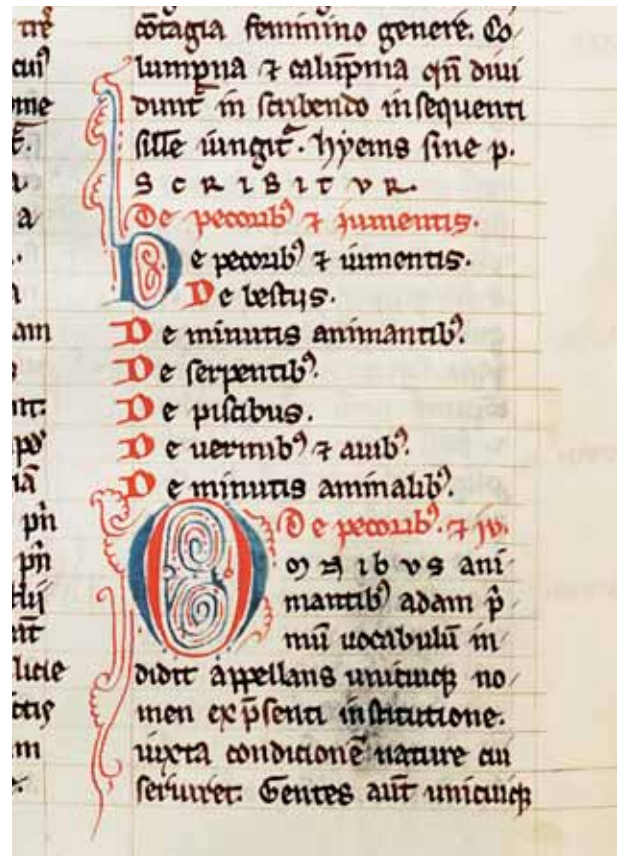 tre᷒
cuiꝰ
ome
t᷒.
a
a
.
a
am
nt:
poꝰ
iā
pn̄
pn̄
huj
nt᷒
licie
ctis
m
e.
cōtagia feminino genere. Co
lumpna ⁊ calup̄nia qn̄ diui
dunt᷒ in scribendo in sequenti
sille iungit᷒. hyems sine p.
SCRIBITVR.
De pecoribꝰ ⁊ jumentis.
De pecoribꝰ ⁊ iumentis.
De bestijs.
De minutis animantibꝰ.
De serpentibꝰ.
De piscibus.
De uermibꝰ ⁊ auibꝰ.
De minutis animalibꝰ.
De pecoribꝰ. ⁊ iv.
OMNIBVS ani
mantibꝰ adam p̄
mū uocabulū in
didit appellans unicuiqꝫ no
men ex p̄senti institutione.
iuxta condicionē nature cui
seruiret. Gentes aūt unicuiqꝫ